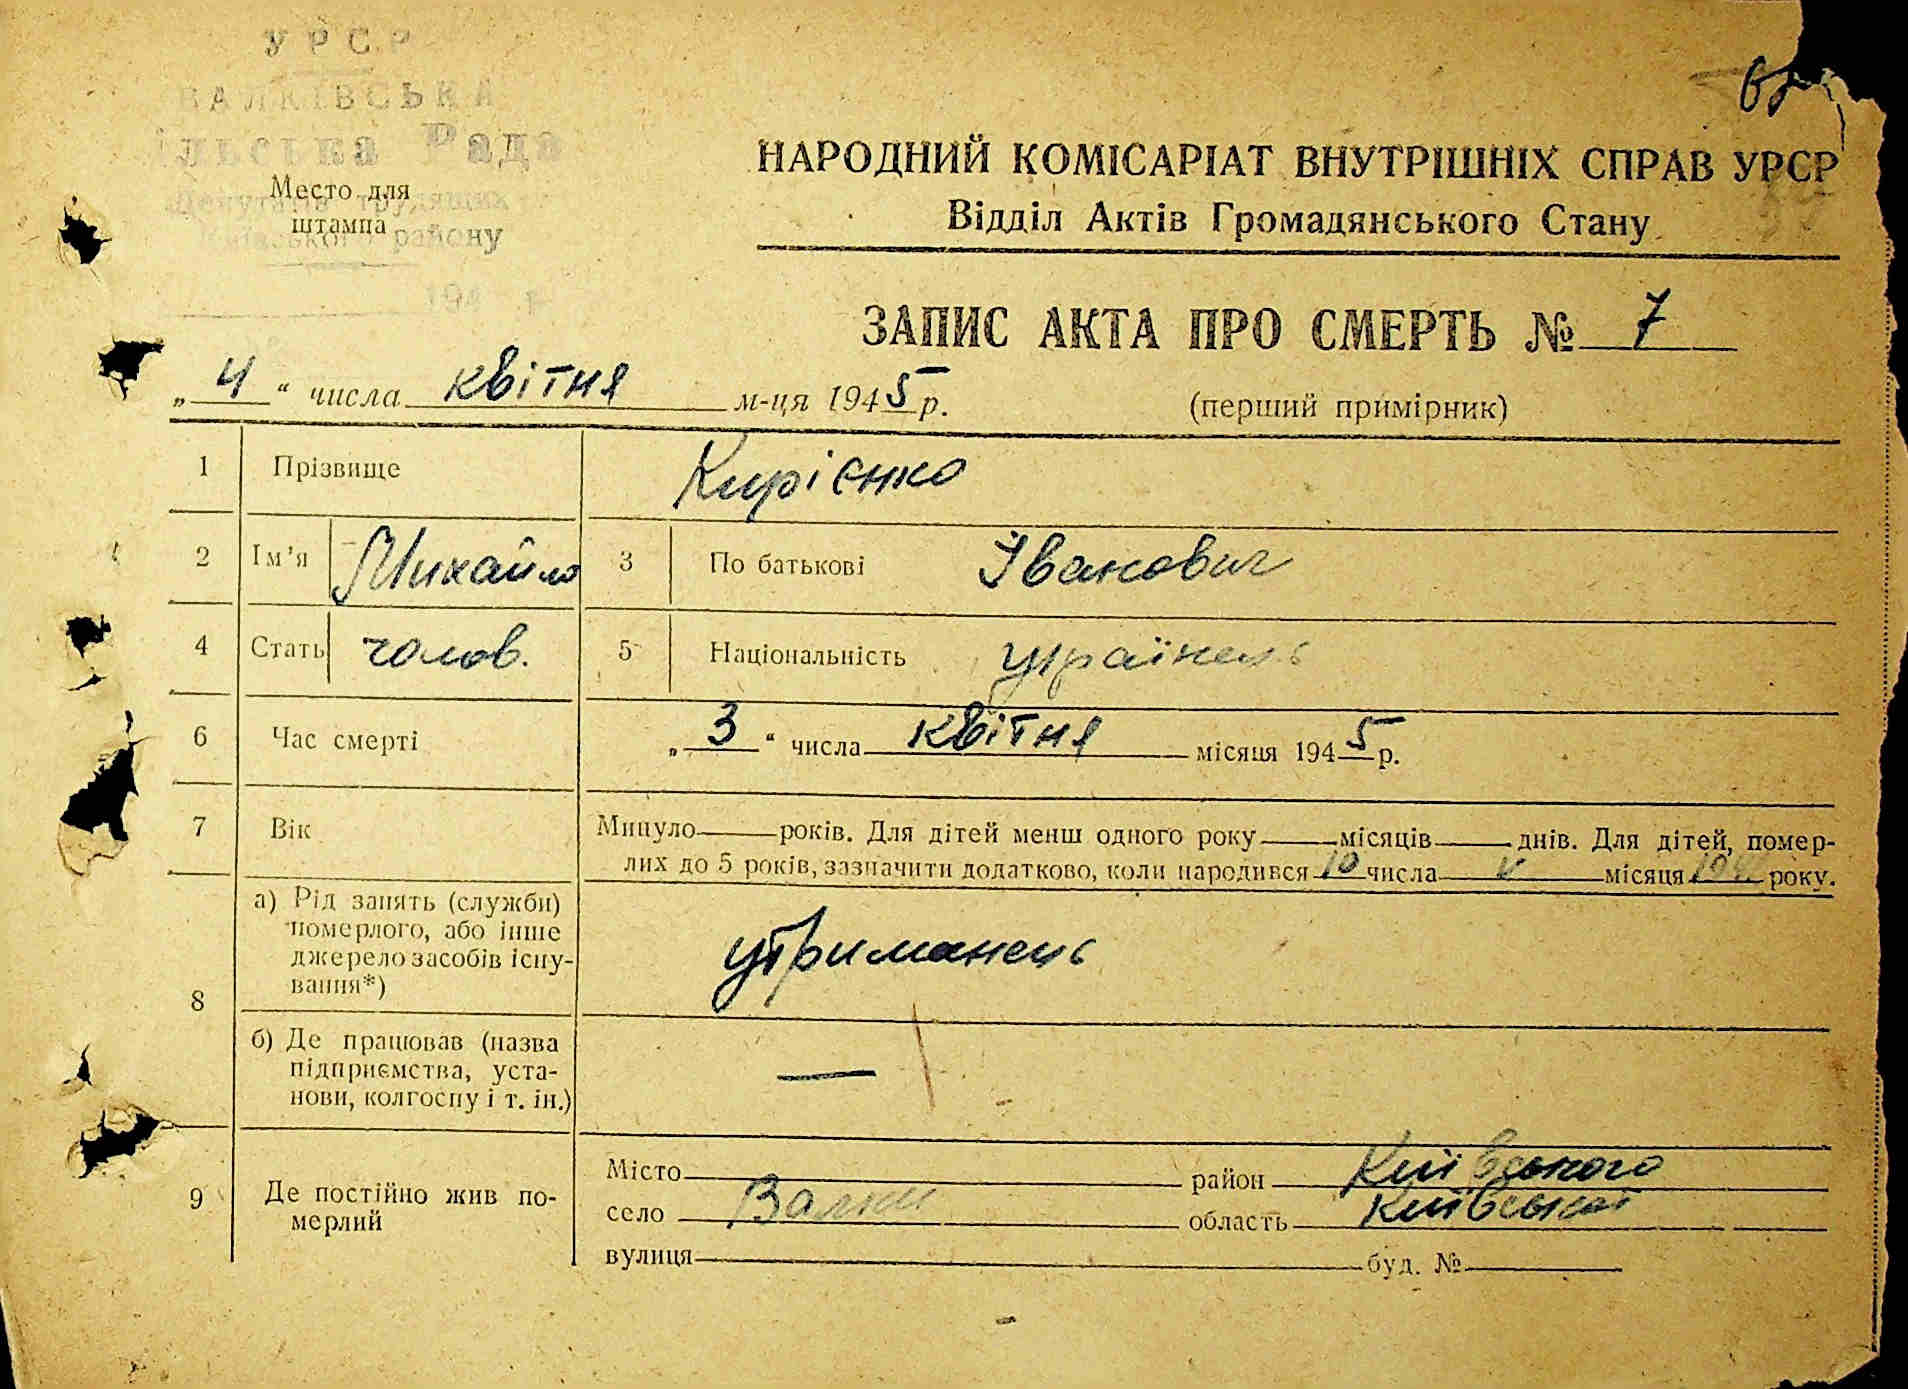 УРСР
ВАЛКІВСЬКА
ільська Рада
Место для
Депутатів трудящих
штампа
Київського району
194 р
НАРОДНИЙ КОМІСАРІАТ ВНУТРІШНІХ СПРАВ УРСР
Відділ Актів Громадянського Стану
ЗАПИС АКТА ПРО СМЕРТЬ № 7
„4“ числа квітня м-ця 1945 р.
(перший примірник)
1 Прізвище Кирієнко
2 Ім'я Михайло 3 По батькові Іванович
4 Стать чолов. 5 Національність українець
6 Час смерті „3“ числа квітня місяця 1945 р.
7 Вік Минуло років. Для дітей менш одного року місяців днів. Для дітей, помер-
лих до 5 років, зазначити додатково, коли народився 10 числа V місяця року.
8
а) Рід занять (служби)
померлого, або інше
джерело засобів існу-
вання*)
утриманець
б) Де працював (назва
підприємства, уста-
нови, колгоспу і т. ін.)
—
9 Де постійно жив по-
мерлий
Місто район Київського
село Валки область Київської
вулиця буд. №